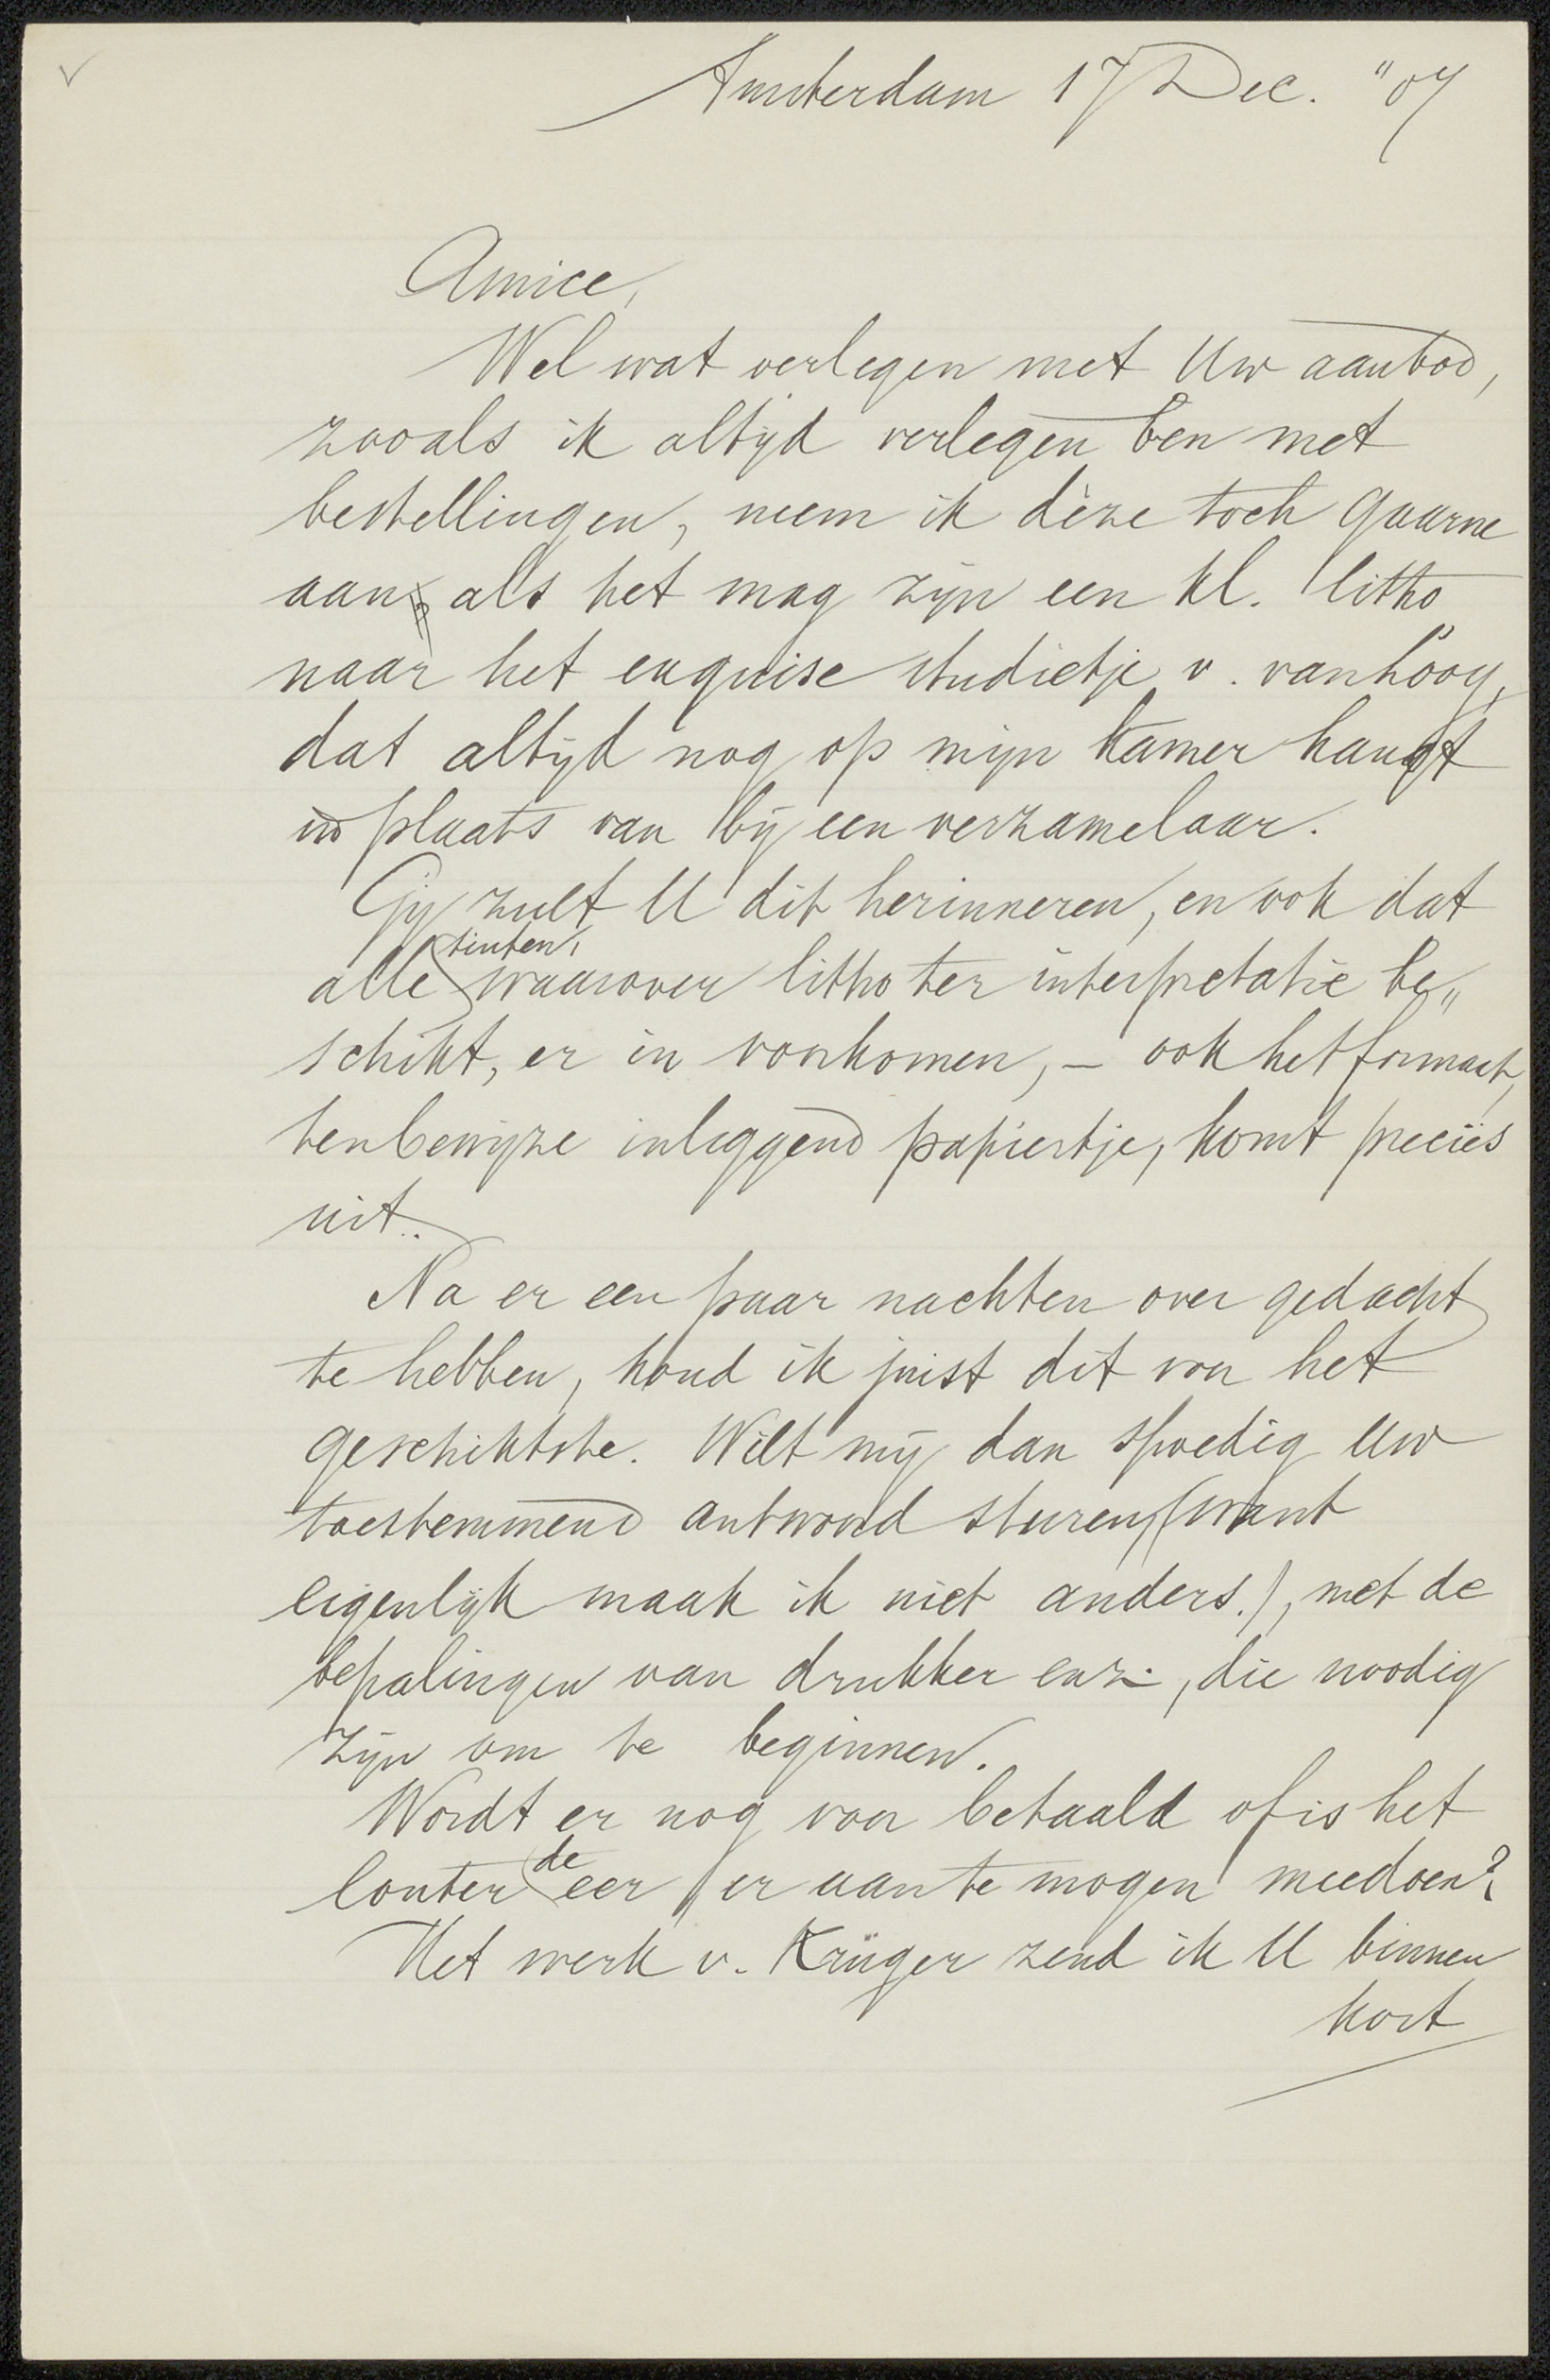 Amsterdam 17 Dec. "07
Amice,
Wel wat verlegen met Uw aanbod,
zooals ik altijd verlegen ben met
bestellingen, neem ik dèze toch gaarne
aan, als het mag zijn een kl. litho
naar het exquise studietje v. vanhoog,
dat altijd nog op mijn kamer hangt
in plaats van bij een verzamelaar.
Gij zult U dit herinneren, en ook dat
alle tinten, waarover litho ter interpretatie be„
schikt, er in voorkomen, – ook het formaat,
tenbewijze inleggend papiertje, komt precies
uit.
Na er een paar nachten over gedacht
te hebben, houd ik juist dit voor het
geschiktste. Wilt mij dan spoedig Uw
toestemmend antwoord sturen, (want
eigenlijk maak ik niet anders.), met de
bepalingen van drukker enz., die noodig
zijn om te beginnen.
Wordt er nog voor betaald of is het
louter de eer er aan te mogen meedoen?
Het werk v. Krüger zend ik U binnen
kort